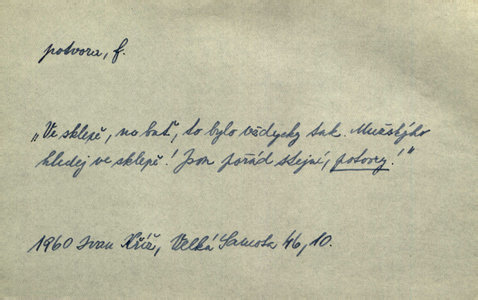 potvora, f.
„Ve sklepě, no bať, to bylo vždycky tak. Mužskýho
hledej ve sklepě! Jsou pořád stejní, potvory!"
1960 Ivan Kříž, Velká Samota 46, 10.